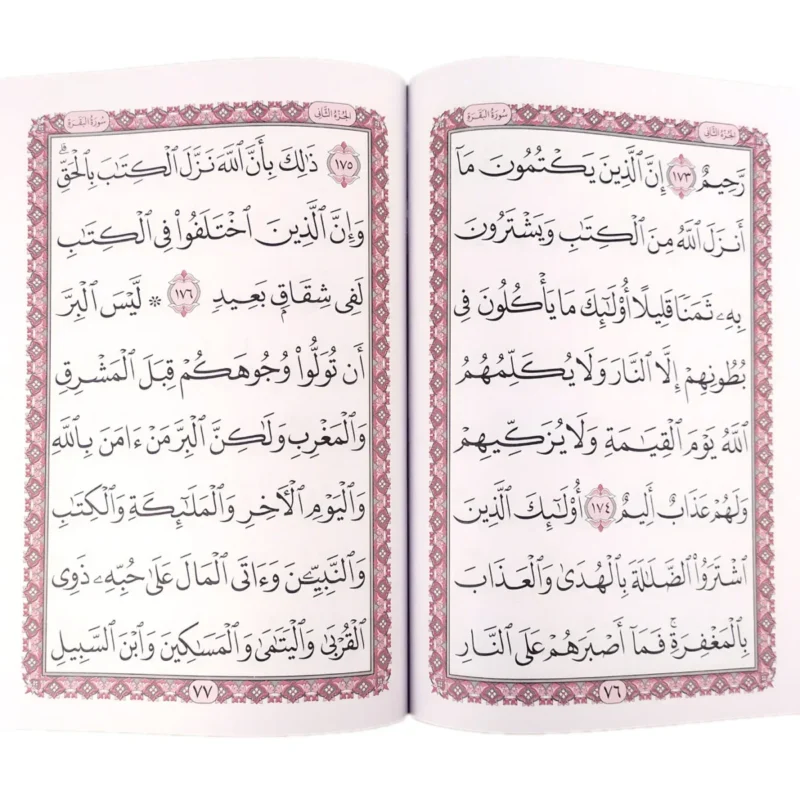 سُورَةُ البَقَرَة
الجُزءُ الثَّانى
رَّحِيمٌ ١٧٣ إِنَّ ٱلَّذِينَ يَكْتُمُونَ مَآ
أَنزَلَ ٱللَّهُ مِنَ ٱلْكِتَٰبِ وَيَشْتَرُونَ
بِهِۦ ثَمَنًا قَلِيلًا أُو۟لَٰٓئِكَ مَا يَأْكُلُونَ فِى
بُطُونِهِمْ إِلَّا ٱلنَّارَ وَلَا يُكَلِّمُهُمُ
ٱللَّهُ يَوْمَ ٱلْقِيَٰمَةِ وَلَا يُزَكِّيهِمْ
وَلَهُمْ عَذَابٌ أَلِيمٌ ١٧٤ أُو۟لَٰٓئِكَ ٱلَّذِينَ
ٱشْتَرَوُا۟ ٱلضَّلَٰلَةَ بِٱلْهُدَىٰ وَٱلْعَذَابَ
بِٱلْمَغْفِرَةِ ۚ فَمَآ أَصْبَرَهُمْ عَلَى ٱلنَّارِ
٧٦
سُورَةُ البَقَرَة
الجُزءُ الثَّانى
١٧٥ ذَٰلِكَ بِأَنَّ ٱللَّهَ نَزَّلَ ٱلْكِتَٰبَ بِٱلْحَقِّ ۗ
وَإِنَّ ٱلَّذِينَ ٱخْتَلَفُوا۟ فِى ٱلْكِتَٰبِ
لَفِى شِقَاقٍۭ بَعِيدٍ ١٧٦ * لَّيْسَ ٱلْبِرَّ
أَن تُوَلُّوا۟ وُجُوهَكُمْ قِبَلَ ٱلْمَشْرِقِ
وَٱلْمَغْرِبِ وَلَٰكِنَّ ٱلْبِرَّ مَنْ ءَامَنَ بِٱللَّهِ
وَٱلْيَوْمِ ٱلْأَخِرِ وَٱلْمَلَٰٓئِكَةِ وَٱلْكِتَٰبِ
وَٱلنَّبِيِّـۧنَ وَءَاتَى ٱلْمَالَ عَلَىٰ حُبِّهِۦ ذَوِى
ٱلْقُرْبَىٰ وَٱلْيَتَٰمَىٰ وَٱلْمَسَٰكِينَ وَٱبْنَ ٱلسَّبِيلِ
٧٧